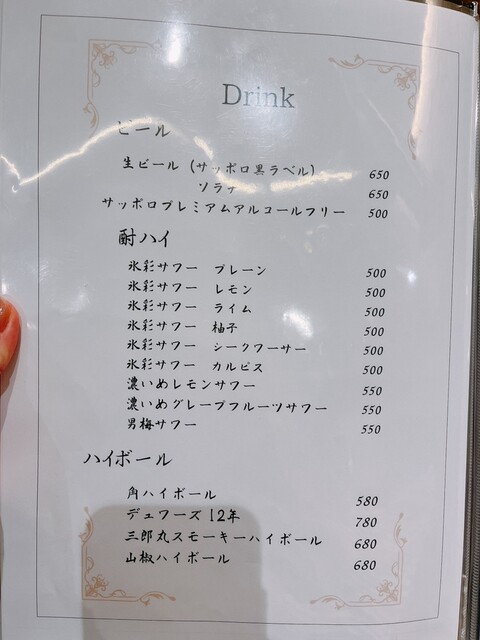 Drink
ビール
生ビール (サッポロ黒ラベル) 650
ソラチ 650
サッポロプレミアムアルコールフリー 500
酎ハイ
氷彩サワー プレーン 500
氷彩サワー レモン 500
氷彩サワー ライム 500
氷彩サワー 柚子 500
氷彩サワー シークワーサー 500
氷彩サワー カルピス 500
濃いめレモンサワー 550
濃いめグレープフルーツサワー 550
男梅サワー 550
ハイボール
角ハイボール 580
デュワーズ 12年 780
三郎丸スモーキーハイボール 680
山椒ハイボール 680